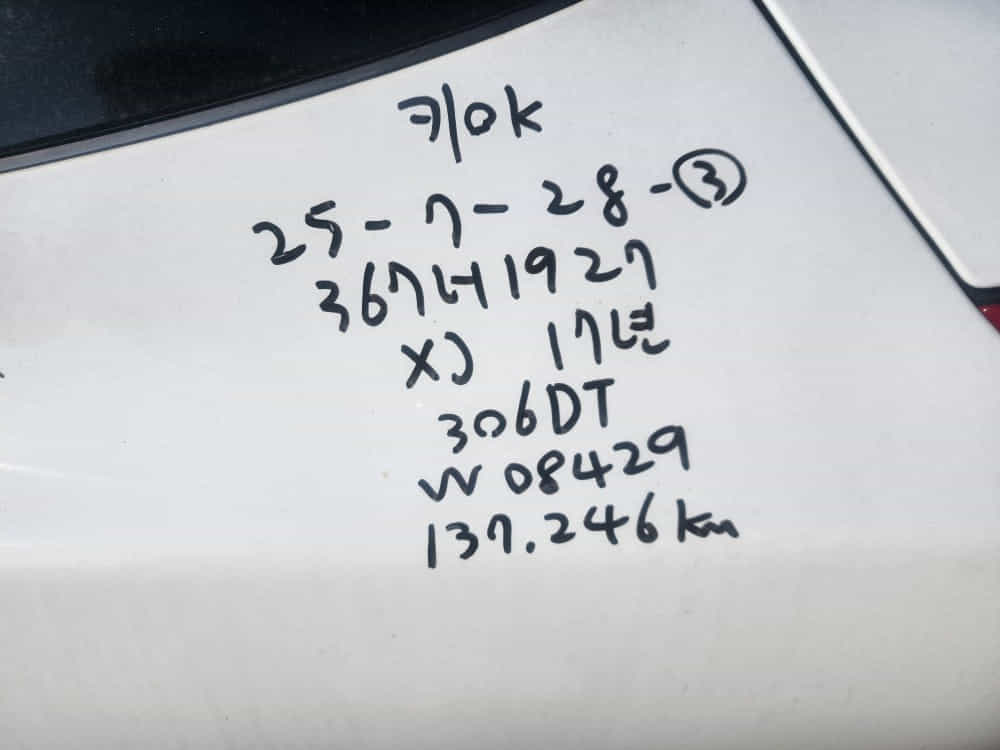 키OK
25-7-28-③
367너1927
XJ 17년
306DT
W08429
137.246km